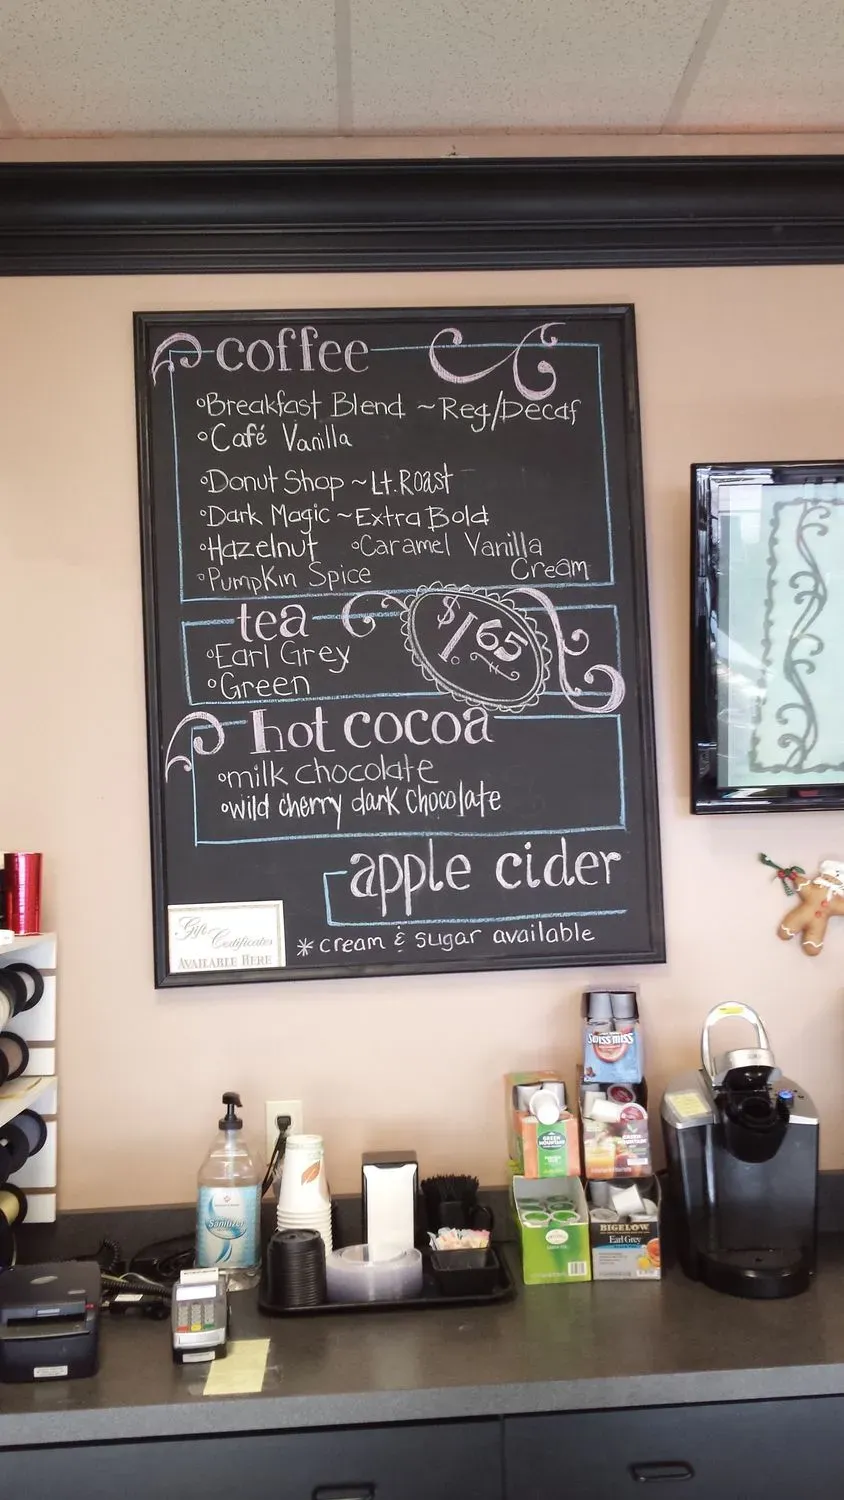 coffee
°Breakfast Blend ~Reg/Decaf
°Café Vanilla
°Donut Shop ~Lt.Roast
°Dark Magic ~Extra Bold
°Hazelnut °Caramel Vanilla Cream
°Pumpkin Spice
tea
°Earl Grey
°Green
$1.65
hot cocoa
°milk chocolate
°wild cherry dark chocolate
apple cider
*cream & sugar available
Gift
Certificates
AVAILABLE HERE
Swiss miss
GREEN MOUNTAIN
GREEN MOUNTAIN
BIGELOW
Earl Grey
Sanitizer